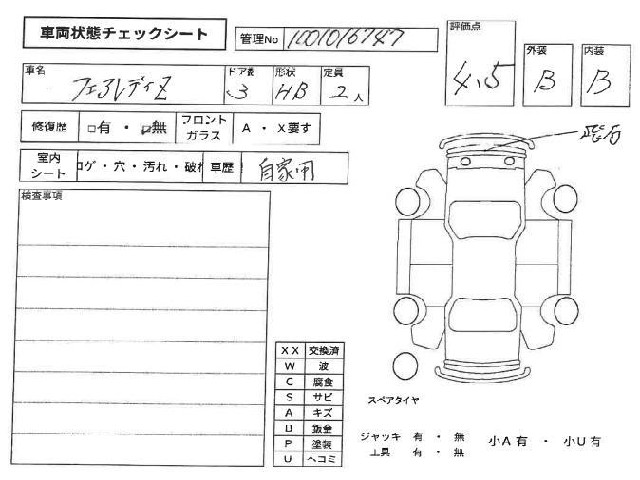 車両状態チェックシート
管理No 1001016747
評価点 4.5
外装 B
内装 B
車名 フェアレディZ
ドア数 3
形状 HB
定員 2人
修復歴 □有・□無
フロントガラス A・X要す
室内シート コゲ・穴・汚れ・破れ
車歴 自家用
検査事項
飛石
XX 交換済
W 波
C 腐食
S サビ
A キズ
B 鈑金
P 塗装
U ヘコミ
スペアタイヤ
ジャッキ 有・無
工具 有・無
小A有・小U有